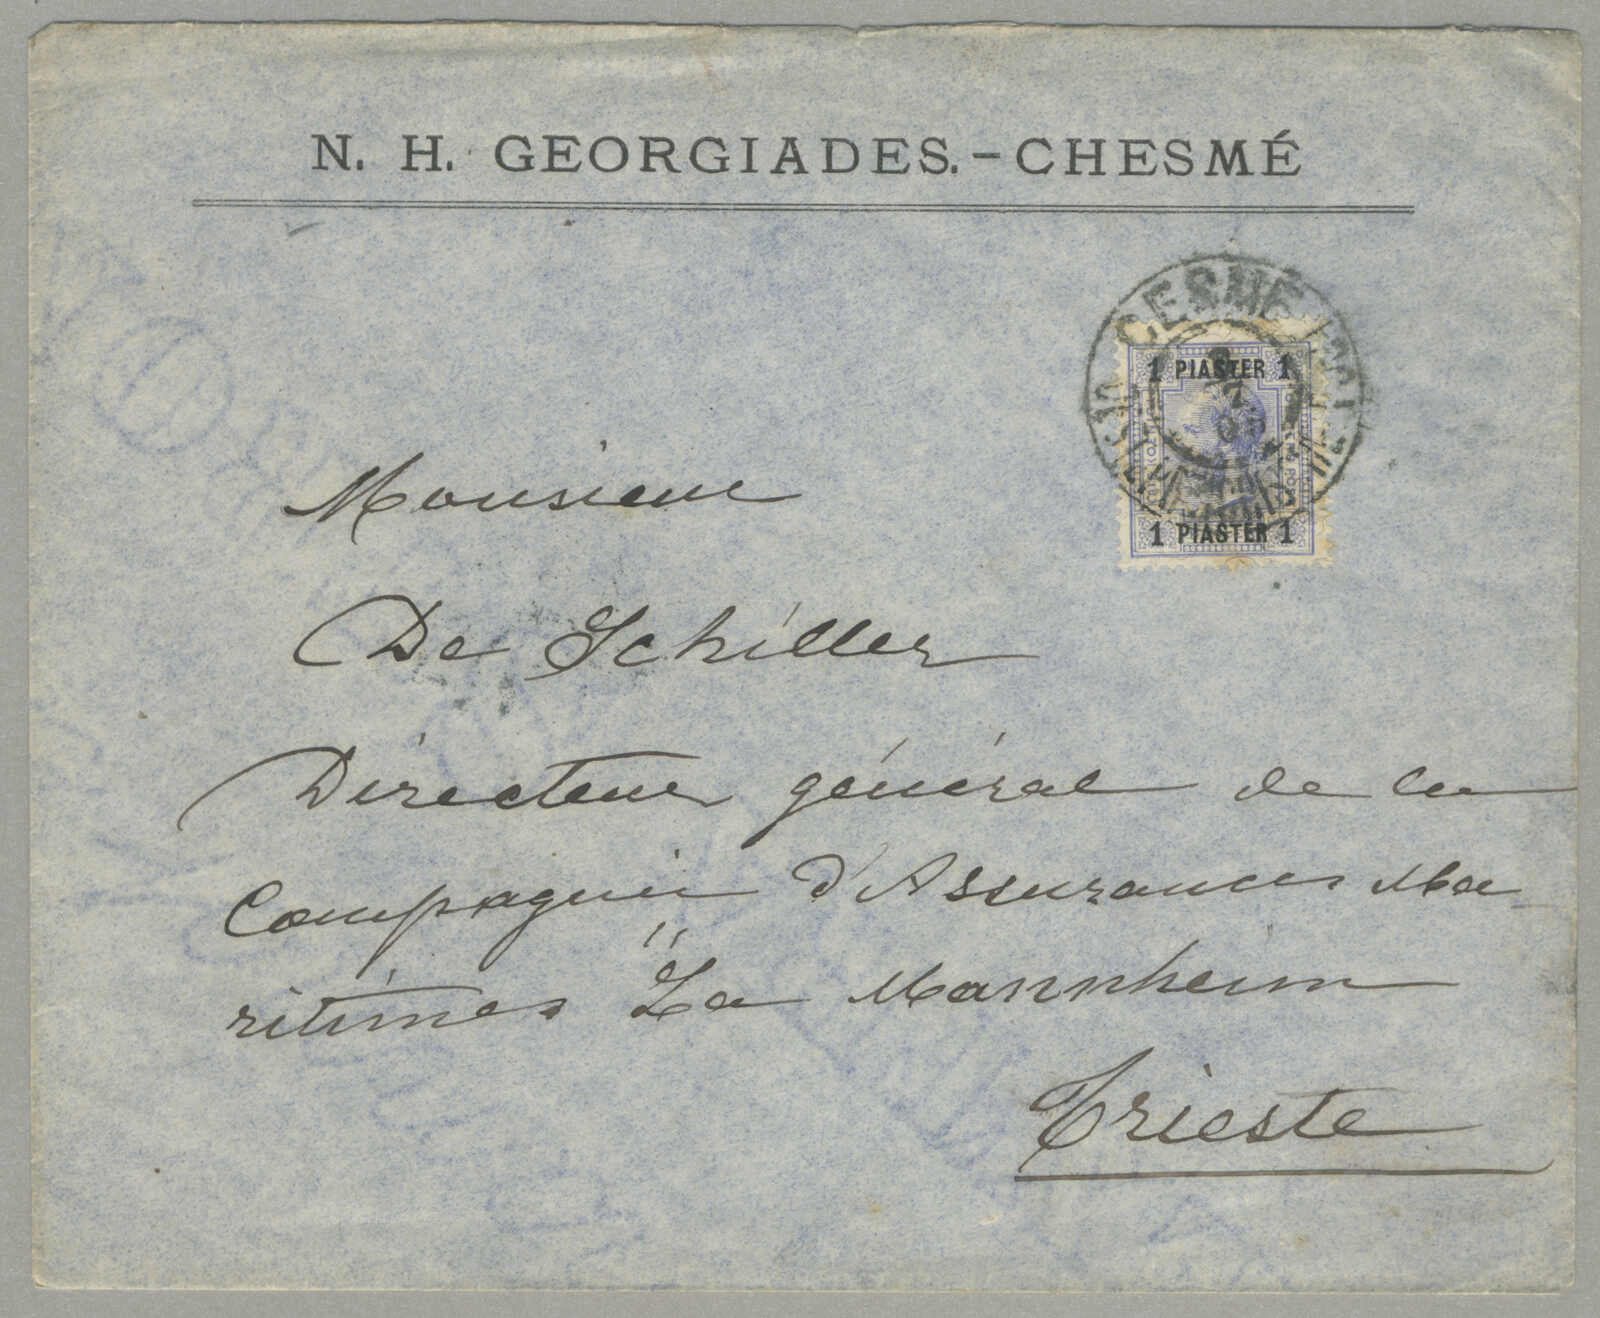 N. H. GEORGIADES. – CHESMÉ
CESMÉ
1 PIASTER 1
1 PIASTER 1
Monsieur
De Schiller
Directeur général de la
Compagnie d'Assurances Ma-
ritimes "La Mannheim
Trieste